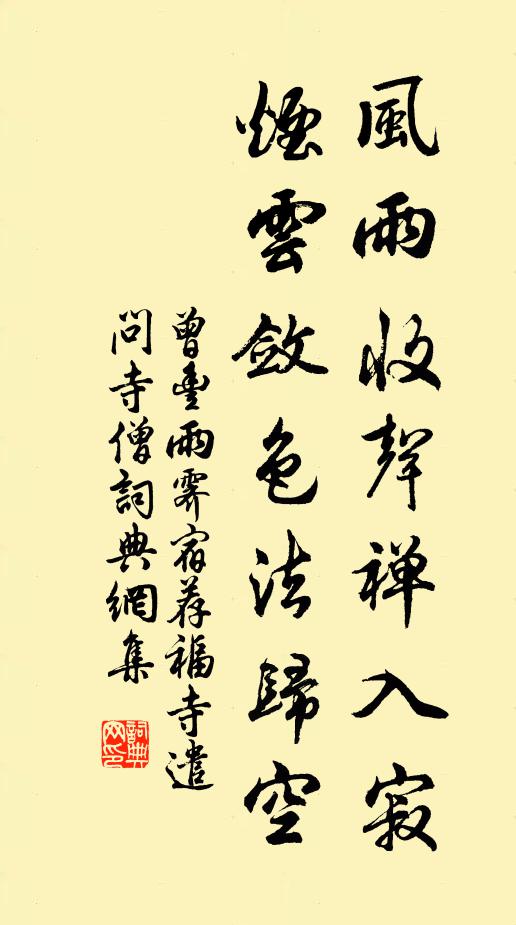 風雨收聲禅入寂
煙雲斂色法歸空
曾豊雨霽宿荐福寺遣
問寺僧詞典網集
詞典
网印